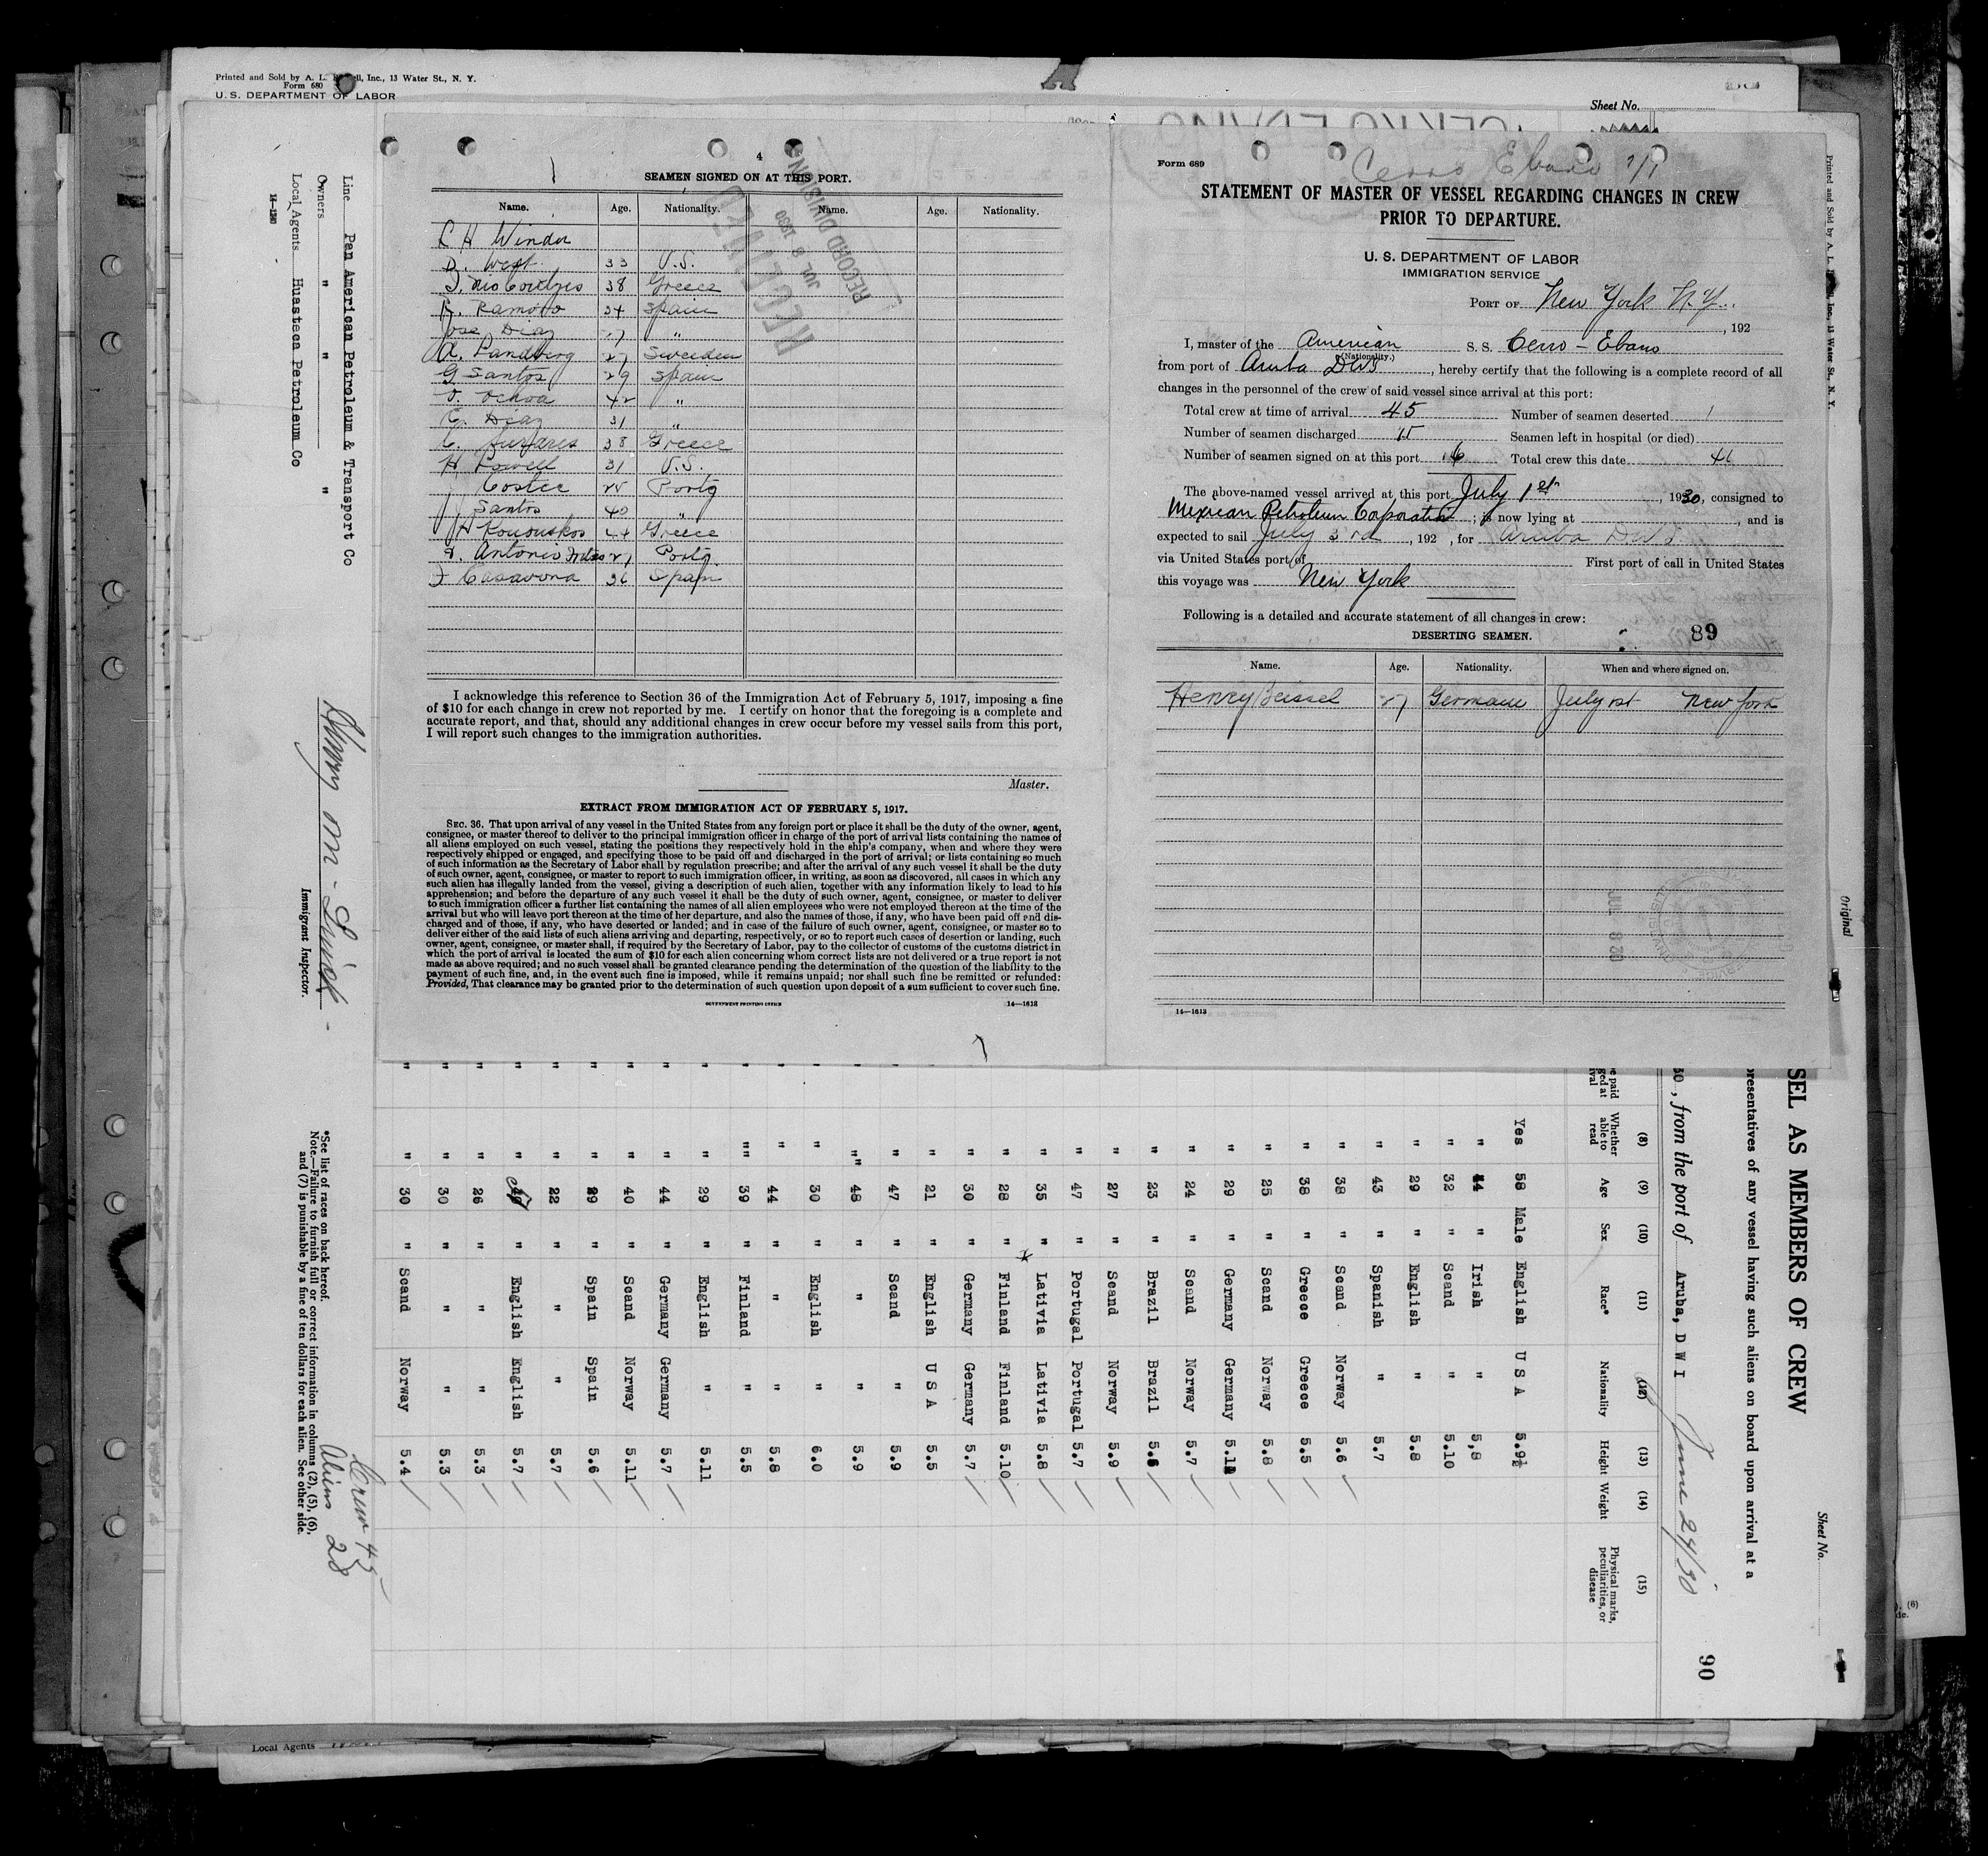 Printed and Sold by A. L. Inc., 13 Water St., N. Y.
Form 680
U. S. DEPARTMENT OF LABOR
Sheet No.
4
SEAMEN SIGNED ON AT THIS PORT.
Name. Age. Nationality. Name. Age. Nationality.
RECEIVED
JUL 8 1930
RECORD DIVISION
D. West 33 U.S.
38 Greece
34 Spain
Jose Diaz 27 "
A. Landberg 27 Sweeden
G Santos 29 Spain
Ochoa 42 "
E. Diaz 31 "
38 Greece
H. Powell 31 U.S.
Portg
Santos 40 "
44 Greece
Antonio Portg.
36 Spain
I acknowledge this reference to Section 36 of the Immigration Act of February 5, 1917, imposing a fine
of $10 for each change in crew not reported by me. I certify on honor that the foregoing is a complete and
accurate report, and that, should any additional changes in crew occur before my vessel sails from this port,
I will report such changes to the immigration authorities.
Master.
EXTRACT FROM IMMIGRATION ACT OF FEBRUARY 5, 1917.
SEC. 36. That upon arrival of any vessel in the United States from any foreign port or place it shall be the duty of the owner, agent,
consignee, or master thereof to deliver to the principal immigration officer in charge of the port of arrival lists containing the names of
all aliens employed on such vessel, stating the positions they respectively hold in the ship's company, when and where they were
respectively shipped or engaged, and specifying those to be paid off and discharged in the port of arrival; or lists containing so much
of such information as the Secretary of Labor shall by regulation prescribe; and after the arrival of any such vessel it shall be the duty
of such owner, agent, consignee, or master to report to such immigration officer, in writing, as soon as discovered, all cases in which any
such alien has illegally landed from the vessel, giving a description of such alien, together with any information likely to lead to his
apprehension; and before the departure of any such vessel it shall be the duty of such owner, agent, consignee, or master to deliver
to such immigration officer a further list containing the names of all alien employees who were not employed thereon at the time of the
arrival but who will leave port thereon at the time of her departure, and also the names of those, if any, who have been paid off and dis-
charged and of those, if any, who have deserted or landed; and in case of the failure of such owner, agent, consignee, or master so to
deliver either of the said lists of such aliens arriving and departing, respectively, or so to report such cases of desertion or landing, such
owner, agent, consignee, or master shall, if required by the Secretary of Labor, pay to the collector of customs of the customs district in
which the port of arrival is located the sum of $10 for each alien concerning whom correct lists are not delivered or a true report is not
made as above required; and no such vessel shall be granted clearance pending the determination of the question of the liability to the
payment of such fine, and, in the event such fine is imposed, while it remains unpaid; nor shall such fine be remitted or refunded:
Provided, That clearance may be granted prior to the determination of such question upon deposit of a sum sufficient to cover such fine.
GOVERNMENT PRINTING OFFICE 14—1613
Form 689
Cerro Ebano 7/1
STATEMENT OF MASTER OF VESSEL REGARDING CHANGES IN CREW
PRIOR TO DEPARTURE.
U. S. DEPARTMENT OF LABOR
IMMIGRATION SERVICE
PORT OF New York N.Y.
, 192
I, master of the American S. S. Cerro - Ebano
(Nationality.)
from port of Aruba DWI , hereby certify that the following is a complete record of all
changes in the personnel of the crew of said vessel since arrival at this port:
Total crew at time of arrival 45 Number of seamen deserted 1
Number of seamen discharged 15 Seamen left in hospital (or died)
Number of seamen signed on at this port 16 Total crew this date
The above-named vessel arrived at this port July 1st , 1930, consigned to
Mexican Petroleum Corporation ; is now lying at , and is
expected to sail July 3rd , 192 , for Aruba DWI
via United States port of First port of call in United States
this voyage was New York
Following is a detailed and accurate statement of all changes in crew:
DESERTING SEAMEN.
89
Name. Age. Nationality. When and where signed on.
Henry Beissel 27 Germanie July 1st New York
JUL 8 30
14—1613
Original
Line Pan American Petroleum & Transport Co
Owners " " "
Local Agents Huasteca Petroleum Co
14-1240
Immigrant Inspector.
*See list of races on back hereof.
Note.—Failure to furnish full or correct information in columns (2), (5), (6),
and (7) is punishable by a fine of ten dollars for each alien. See other side.
Crew 45
Aliens 28
Sheet No.
SEL AS MEMBERS OF CREW
presentatives of any vessel having such aliens on board upon arrival at a
30, from the port of Aruba, D W I June 24/30
90
(8) (9) (10) (11) (12) (13) (14) (15)
Whether able to read Age Sex Race* Nationality Height Weight Physical marks, peculiarities, or disease
Yes 58 Male English U S A 5.9½
" 44 " Irish " 5,8
" 32 " Scand " 5.10
" 29 " English " 5.8
" 43 " Spanish " 5.7
" 38 " Scand Norway 5.6
" 38 " Greece Greece 5.5
" 25 " Scand Norway 5.8
" 29 " Germany Germany 5.11
" 24 " Scand Norway 5.7
" 23 " Brazil Brazil 5.6
" 27 " Scand Norway 5.9
" 47 " Portugal Portugal 5.7
" 35 " Lativia Lativia 5.8
" 28 " Finland Finland 5.10
" 30 " Germany Germany 5.7
" 21 " English U S A 5.5
" 47 " Scand " 5.9
" 48 " " " 5.9
" 30 " English " 6.0
" 44 " " " 5.8
" 39 " Finland " 5.5
" 29 " English " 5.11
" 44 " Germany Germany 5.7
" 40 " Scand Norway 5.11
" 29 " Spain Spain 5.6
" 22 " " " 5.7
" " English English 5.7
" 26 " " " 5.3
" 30 " " " 5.3
" 30 " Scand Norway 5.4
Local Agents